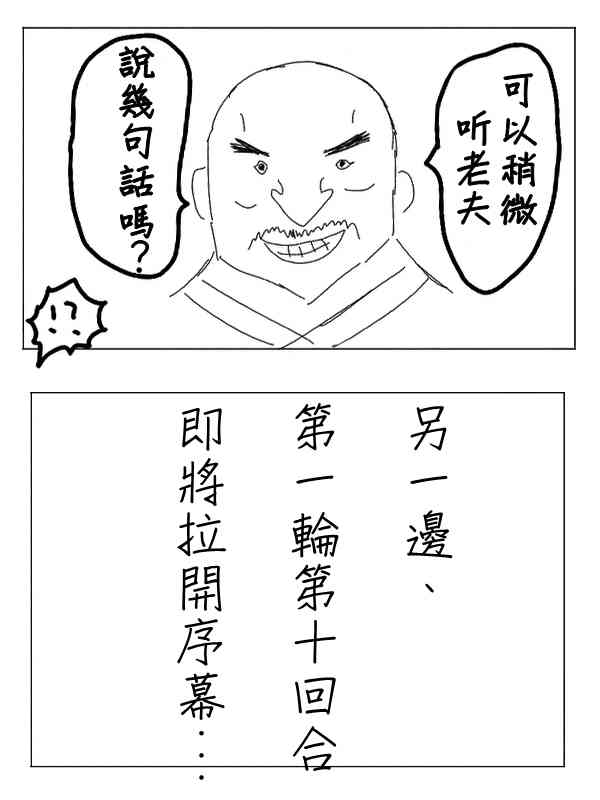 可以稍微
听老夫
說幾句話嗎？
！？
另一邊、
第一輪第十回合
即將拉開序幕⋯